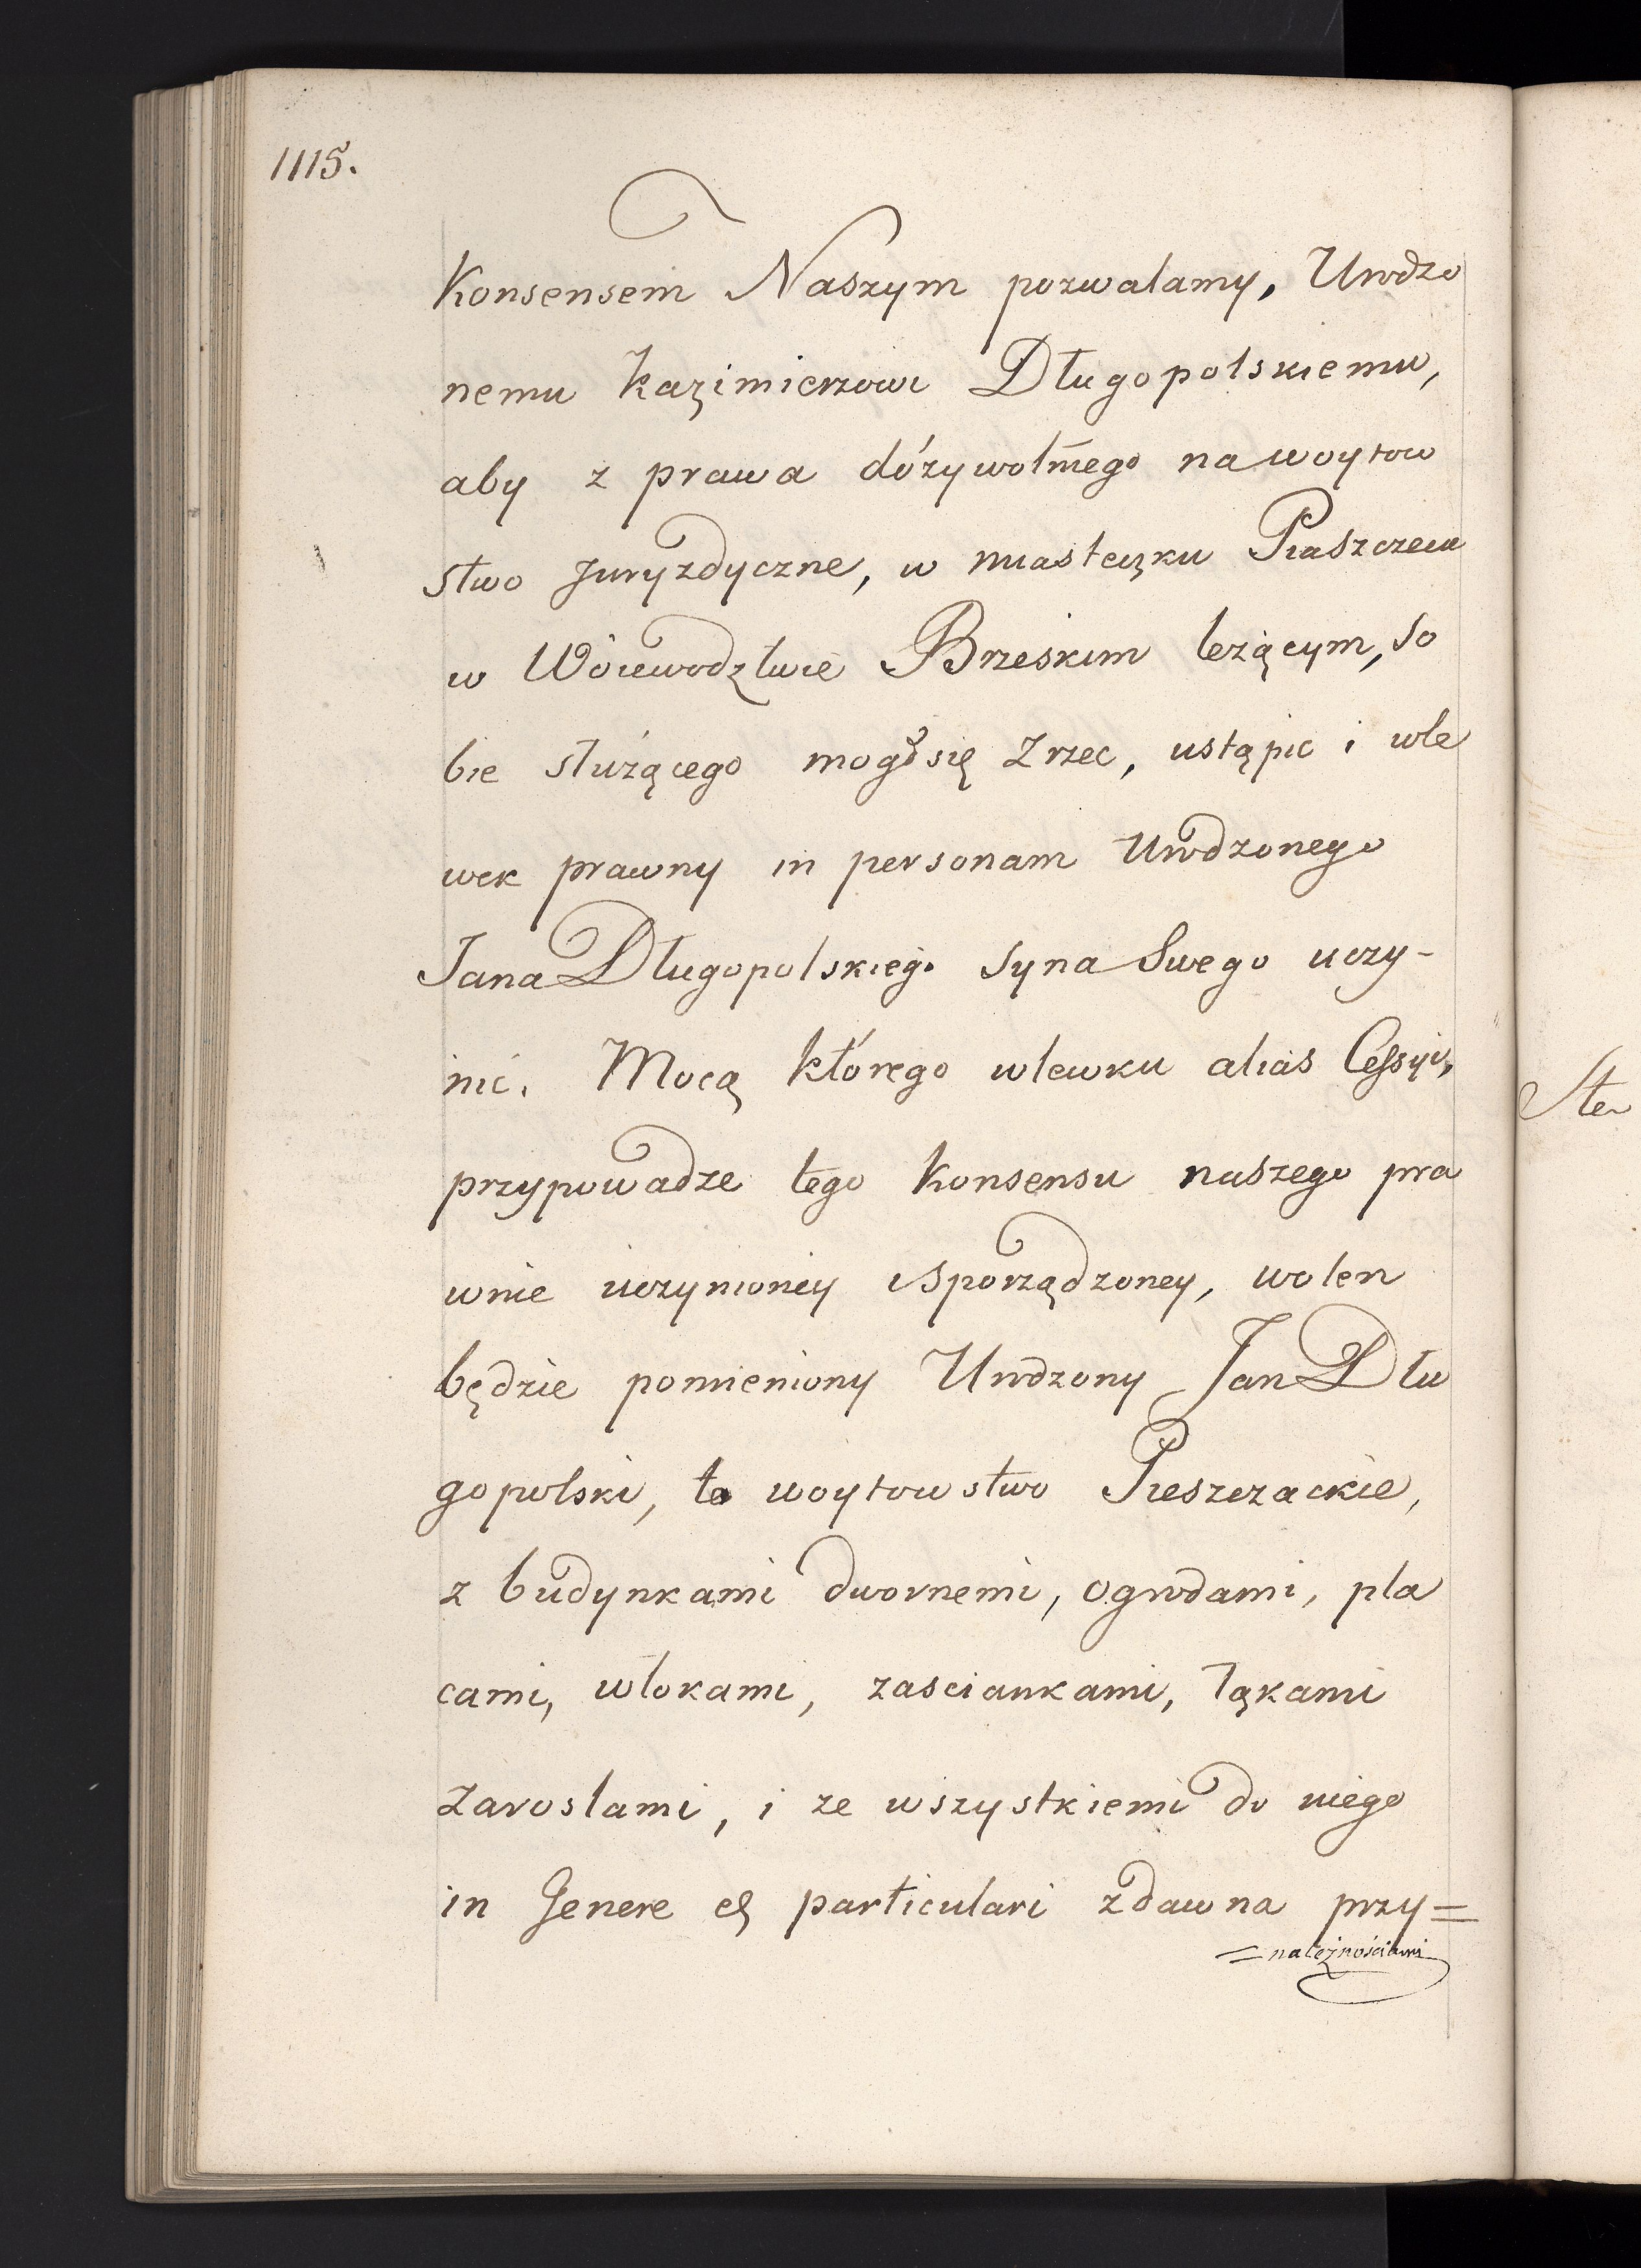 1115.
Konsensem Naszym pozwalamy, Urodzo
nemu Kazimierzowi Długopolskiemu,
aby z prawa dóżywotnego na woytow
stwo Juryzdyczne, w miasteczku Piaszczecu
w Woiewodztwie Brzeskim leżącym, so
bie służącego mogł się zrzec, ustąpic i wle
wek prawny in personam Urodzonego
Jana Długopolskiego syna Swego uczy-
nić. Mocą którego wlewku alias Cessyi,
przypowadze tego Konsensu naszego pra
wnie uczynioney i sporządzoney, wolen
będzie pomieniony Urodzony Jan Dłu
gopolski, to woytowstwo Pieszczackie,
z budynkami dwornemi, ogrodami, pla
cami, włokami, zasciankami, łąkami
zaroslami, i ze wszystkiemi do niego
in Genere et particulari zdawna przy=
=należnościami
Ste